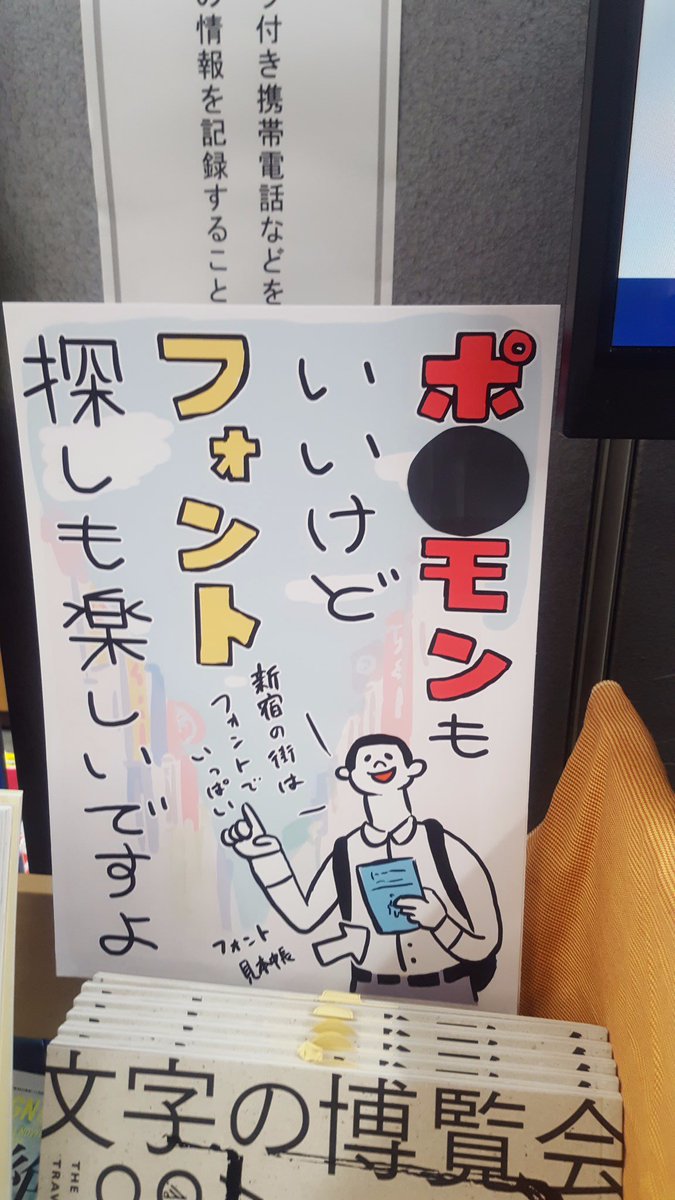 り付き携帯電話などを
の情報を記録すること
ポ●モンも
いいけど
フォント
探しも楽しいですよ
新宿の街は
フォントで
いっぱい
フォント
見本帳
文字の博覧会
THE
TRAV